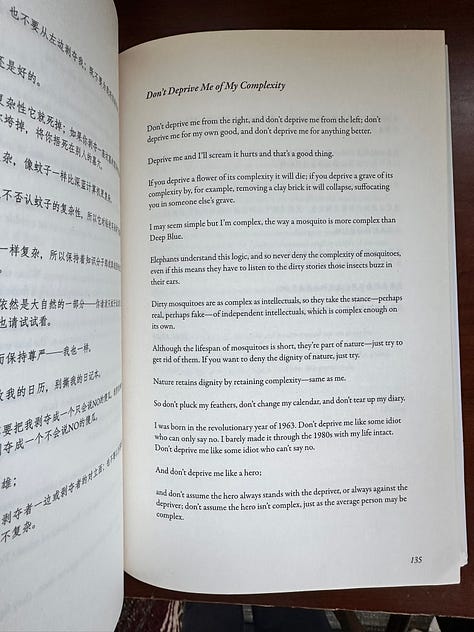 也不要从左边剥夺我；
还是好的。
复杂性它就死掉；如果你
垮掉，将你捂死在别人的
杂，像蚊子一样比深蓝计算机
不否认蚊子的复杂性，所以
一样复杂，所以保持着知识分子
依然是大自然的一部分——
也请试试看。
而保持尊严——我也一样，
我的日历，别撕我的日记本。
要把我剥夺成一个只会说NO的傻瓜，
剥夺成一个不会说NO的傻瓜。
雄；
剥夺者一边或剥夺者的对立面；
不复杂。
Don't Deprive Me of My Complexity
Don't deprive me from the right, and don't deprive me from the left; don't
deprive me for my own good, and don't deprive me for anything better.
Deprive me and I'll scream it hurts and that's a good thing.
If you deprive a flower of its complexity it will die; if you deprive a grave of its
complexity by, for example, removing a clay brick it will collapse, suffocating
you in someone else's grave.
I may seem simple but I'm complex, the way a mosquito is more complex than
Deep Blue.
Elephants understand this logic, and so never deny the complexity of mosquitoes,
even if this means they have to listen to the dirty stories those insects buzz in
their ears.
Dirty mosquitoes are as complex as intellectuals, so they take the stance—perhaps
real, perhaps fake—of independent intellectuals, which is complex enough on
its own.
Although the lifespan of mosquitoes is short, they're part of nature—just try to
get rid of them. If you want to deny the dignity of nature, just try.
Nature retains dignity by retaining complexity—same as me.
So don't pluck my feathers, don't change my calendar, and don't tear up my diary.
I was born in the revolutionary year of 1963. Don't deprive me like some idiot
who can only say no. I barely made it through the 1980s with my life intact.
Don't deprive me like some idiot who can't say no.
And don't deprive me like a hero;
and don't assume the hero always stands with the depriver, or always against the
depriver; don't assume the hero isn't complex, just as the average person may be
complex.
135